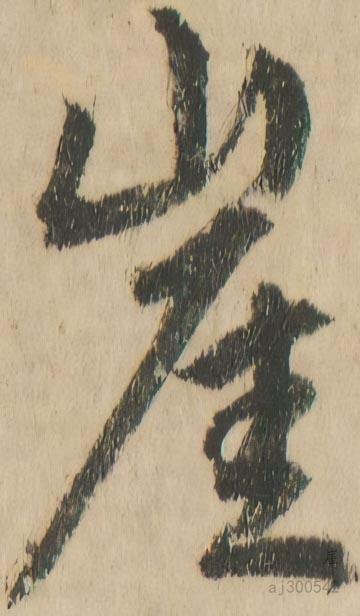 崖
aj300542